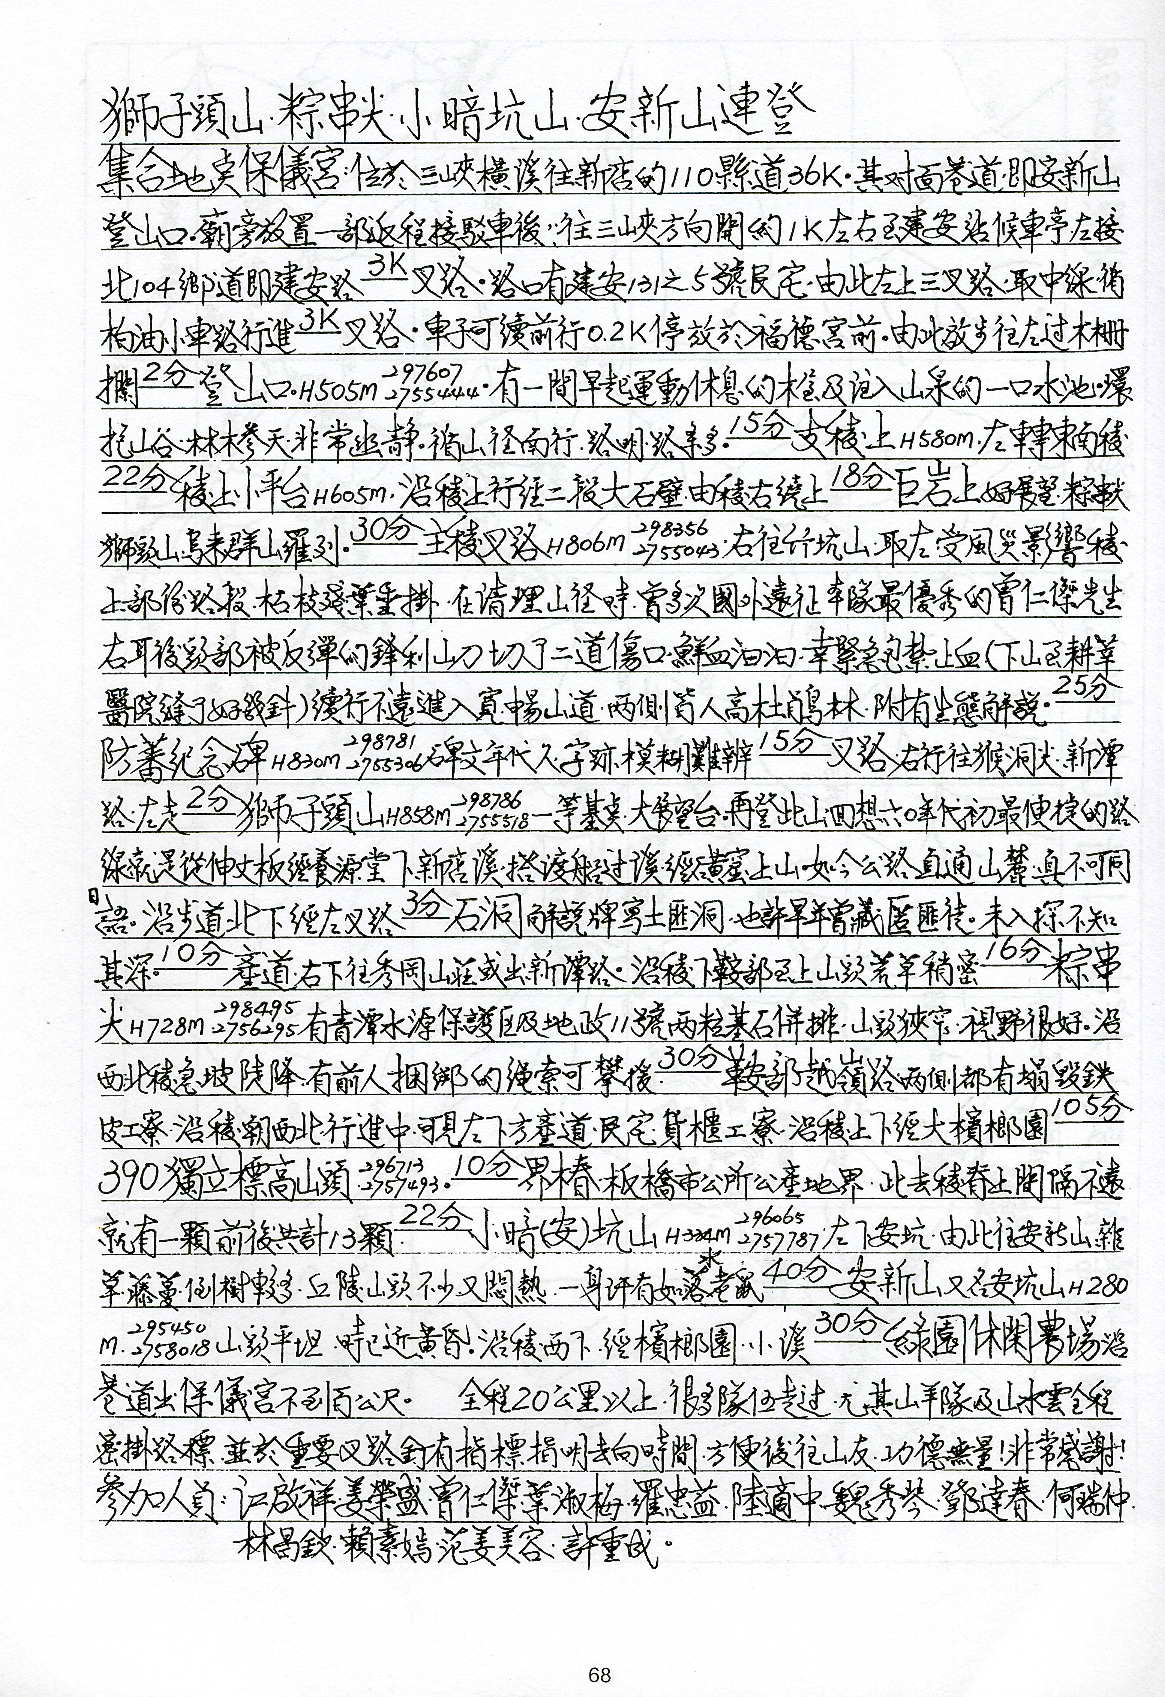 獅子頭山·粽串尖·小暗坑山·安新山連登
集合地点保儀宮·位於三峽橫溪往新店的110縣道36K。其対面巷道·即安新山
登山口。廟旁放置一部返程接駁車後，往三峽方向開約1K左右至建安站候車亭左接
北104鄉道即建安路 3K 叉路。路口有建安131之5號民宅·由此左上三叉路·取中線·循
柏油小車路行進 3K 叉路。車子可續前行0.2K停放於福德宮前。由此放步往左过木柵
欄 2分 登山口。H505m 297607 2755444。有一間早起運動休息的木屋及注入山泉的一口水池。環
抱山谷·林木參天·非常幽静。循山径南行·路明·路条多。15分 支稜上H580m·左轉東南稜
22分 稜上小平台H605m·沿稜上行經二段大石壁·由稜右繞上 18分 巨岩上好展望·粽串尖
獅頭山·烏来群山羅列。30分 主稜叉路H806m 298356 2755043·右往竹坑山·取左受風災影響稜
上部份路段·枯枝殘葉垂掛·在清理山径時·曾多次國外遠征本隊最優秀的曾仁傑先生
右耳後頭部被反彈的鋒利山刀切了二道傷口·鮮血汩汩·幸緊急包紮止血(下山至耕莘
醫院縫了好幾針)續行不遠進入寬暢山道·兩側皆人高杜鵑林·附有生態解說。25分
防蕃紀念碑H830m 298781 2755306碑文年代久·字跡模糊難辨 15分 叉路·右行往猴洞尖·新潭
路·左走 2分 獅子頭山H858m 298786 2755518一等基点·大展望台。再登此山回想六0年代初最便捷的路
線就是從伸丈板經養源堂下新店溪·搭渡船过溪經磺窑上山·如今公路直通山麓·真不可同
日語。沿步道北下經左叉路 3分 石洞·解說牌寫土匪洞·也許早年曾藏匿匪徒。未入探·不知
其深。10分 產道·右下往秀岡山莊或出新潭路。沿稜下鞍部至上山頭荒草稍密 16分 粽串
尖H728m 298495 2756295有青潭水源保護區及地政11號兩粒基石併排·山頭狹窄·視野很好。沿
西北稜急坡陡降·有前人捆綁的绳索可攀援·30分 鞍部越嶺路兩側都有塌毀鉄
皮工寮·沿稜朝西北行進中·可見左下方產道·民宅·貨櫃工寮·沿稜上下經大檳榔園 105分
390獨立標高山頭 296713 2757493。10分 界樁·板橋市公所公產地界·此去稜脊上間隔不遠
就有一顆前後共計13顆·22分 小暗(安)坑山H334m 296065 2757787·左下安坑·由此往安新山雜
草藤蔓倒樹較多·丘陵山頭不少又悶熱·一身汗有如落水老鼠 40分 安新山又名安坑山H280
m·295450 2758018山頭平坦·時已近黃昏。沿稜西下·經檳榔園·小溪 30分 綠園休閑農場沿
巷道出保儀宮不到百公尺。 全程20公里以上·很多隊伍走过·尤其山羊隊及山水雲全程
密掛路標·並於重要叉路釘有指標·指明去向時間·方便後往山友·功德無量!非常感謝!
參加人員：江啟祥·姜榮盛·曾仁傑·葉淑梅·羅忠益·陸適中·魏秀琴·鄧達春·何瑞仲·
林昌欽·賴素嫣·范姜美容·許重成。
68